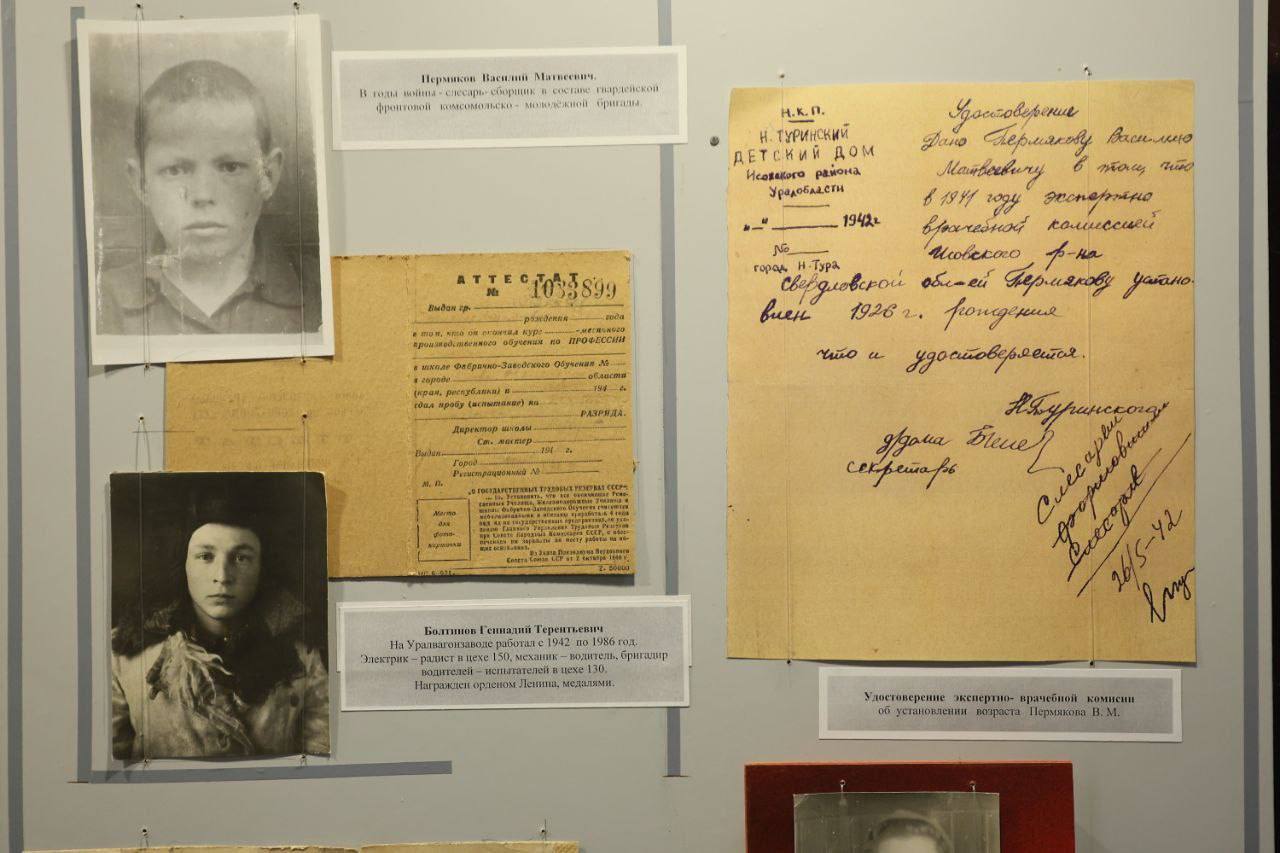 Пермяков Василий Матвеевич.
В годы войны - слесарь- сборщик в составе гвардейской
фронтовой комсомольско - молодёжной бригады.
АТТЕСТАТ
№ 1033899
Выдан гр.
рождения года
в том, что он окончил курс -месячного
производственного обучения по ПРОФЕССИИ
в школе Фабрично-Заводского Обучения №
в городе области
(края, республики) в 194 г.
сдал пробу (испытание) на
РАЗРЯДА.
Директор школы
Ст. мастер
Выдан 194 г.
Город
Регистрационный №
М. П.
Место
для
фото-
карточки
О ГОСУДАРСТВЕННЫХ ТРУДОВЫХ РЕЗЕРВАХ СССР
Установить, что все окончившие Реме-
сленные Училища, Железнодорожные Училища и
школы Фабрично-Заводского Обучения считаются
мобилизованными и обязаны проработать 4 года
Из Указа Президиума Верховного
Совета Союза ССР от 2 октября 1940 г.
Болтинов Геннадий Терентьевич
На Уралвагонзаводе работал с 1942 по 1986 год.
Электрик – радист в цехе 150, механик – водитель, бригадир
водителей – испытателей в цехе 130.
Награжден орденом Ленина, медалями.
Н.К.П.
Н. ТУРИНСКИЙ
ДЕТСКИЙ ДОМ
Исовского района
Уралобласти
„ – “ 1942г
№
город Н-Тура
Удостоверение
Дано Пермякову Василию
Матвеевичу в том, что
в 1941 году экспертно
врачебной комиссией
Исовского р-на
Свердловской обл-ей Пермякову устано-
влен 1926 г. рождения
что и удостоверяется.
Н Туринского
д/дома
секретарь
Слесарем
Слесарем
26/5-42
Удостоверение экспертно- врачебной комисии
об установлении возраста Пермякова В. М.